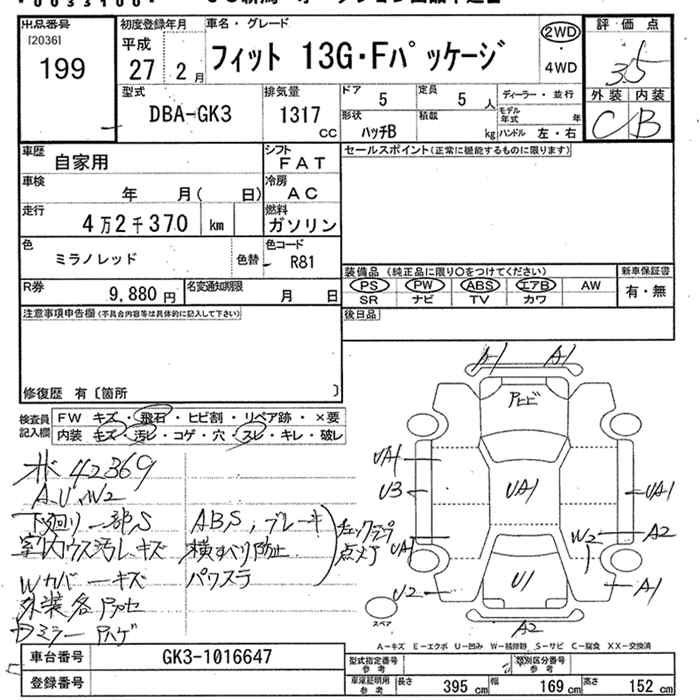 出品番号
[2036]
199
初度登録年月
平成
27 2月
車名・グレード
フィット 13G・Fパッケージ
2WD
・
4WD
評価点
3.5
外装 内装
C B
型式
DBA-GK3
排気量
1317
cc
ドア
5
定員
5人
ディーラー・並行
形状
ハッチB
積載
kg
モデル年式 年
ハンドル 左・右
車歴
自家用
シフト
FAT
セールスポイント(正常に機能するものに限ります)
車検
年 月( 日)
冷房
AC
走行
4万2千370 km
燃料
ガソリン
色
ミラノレッド
色替
色コード
R81
装備品(純正品に限り○をつけてください)
新車保証書
PS PW ABS エアB AW
有・無
SR ナビ TV カワ
R券
9,880円
名変通知期限
月 日
後日品
注意事項申告欄(不具合内容等は具体的に記入して下さい)
修復歴 有〔箇所 〕
検査員
記入欄
FW キズ・飛石・ヒビ割・リペア跡・×要
内装 キズ・汚レ・コゲ・穴・スレ・キレ・破レ
米 42369
A.U.W2
下廻り一部S
室内ウス汚レ、キズ
Wカバーキズ
外装各
Dミラー
ABS、ブレーキ
横すべり防止
パワステ
チェックランプ
点灯
A1
A1
UA1
U3
UA1
UA1
UA1
A2
W2
U2
U1
A1
A2
スペア
A-キズ E-エクボ U-凹み W-補修跡 S-サビ C-腐食 XX-交換済
車台番号
GK3-1016647
登録番号
型式指定番号
参考
類別区分番号
参考
車庫証明用
参考
長さ 395 cm 幅 169 cm 高さ 152 cm